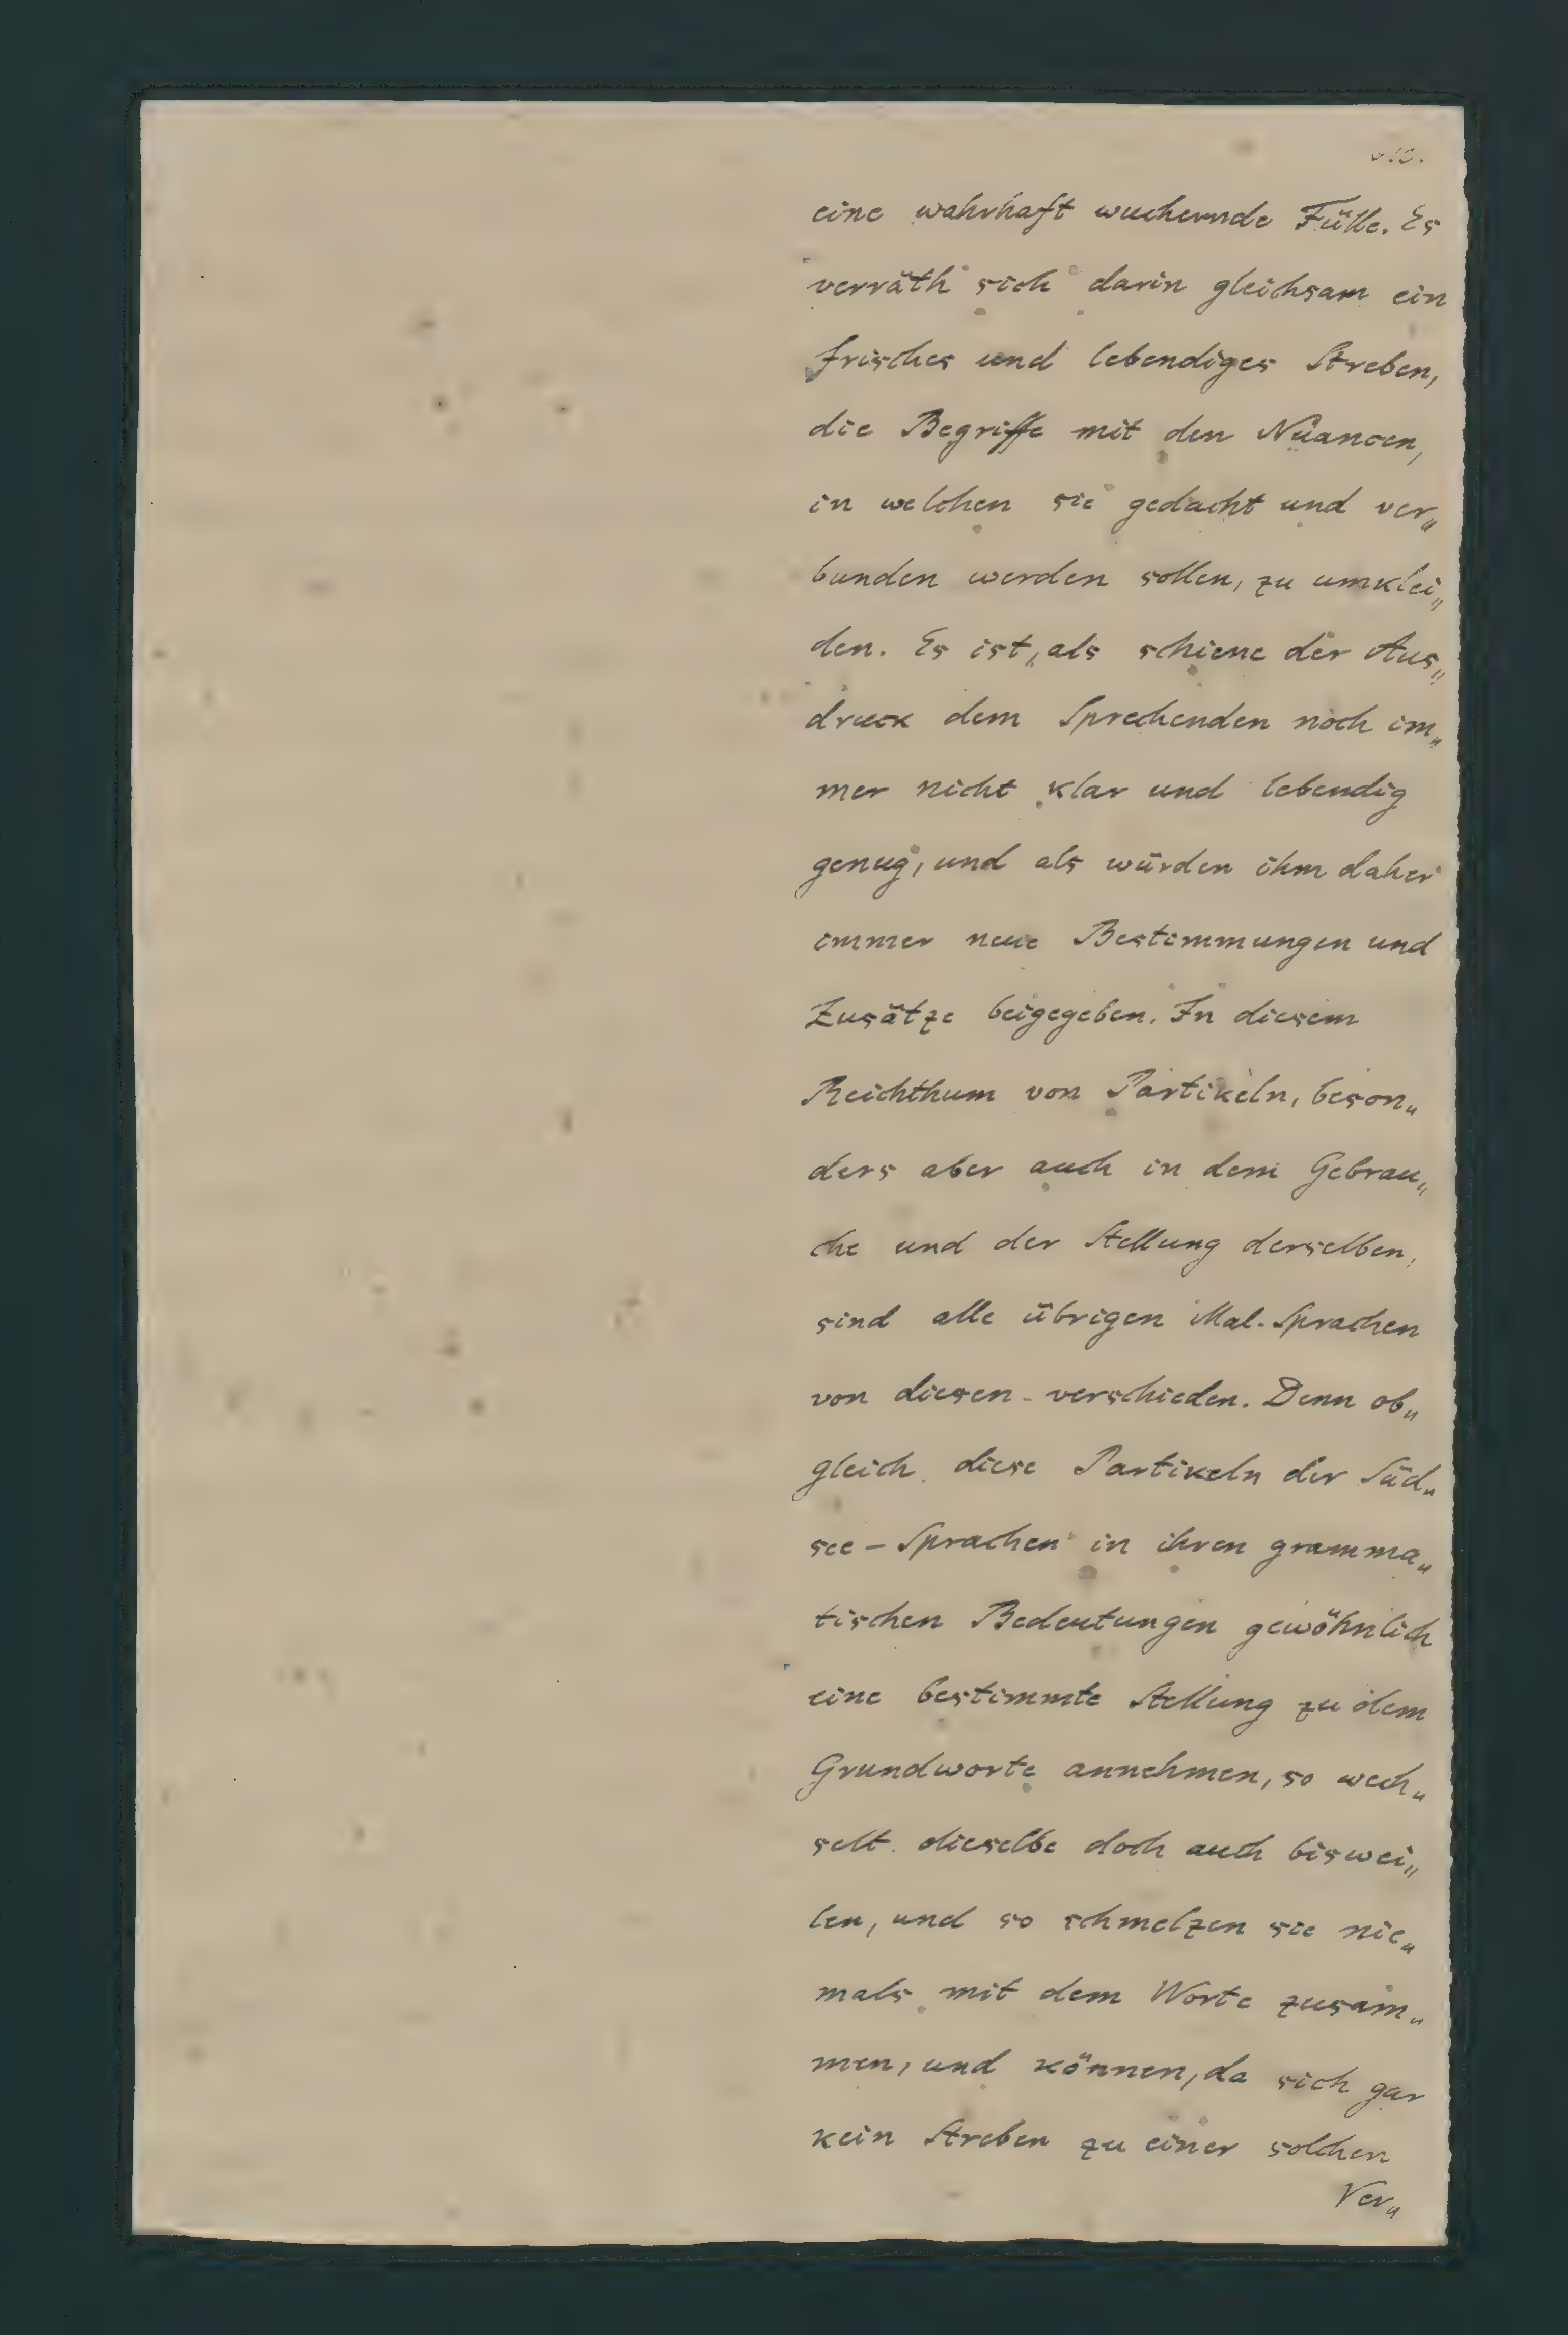 eine wahrhaft wuchernde Fülle. Es
verräth sich darin gleichsam ein
frisches und lebendiges Streben,
die Begriffe mit den Nüancen,
in welchen sie gedacht und ver„
bunden werden sollen, zu umklei„
den. Es ist, als schiene der Aus„
druck dem Sprechenden noch im„
mer nicht klar und lebendig
genug, und als würden ihm daher
immer neue Bestimmungen und
Zusätze beigegeben. In diesem
Reichthum von Partikeln, beson„
ders aber auch in dem Gebrau„
che und der Stellung derselben,
sind alle übrigen Mal. Sprachen
von diesen verschieden. Denn ob„
gleich diese Partikeln der Süd„
see-Sprachen in ihren gramma„
tischen Bedeutungen gewöhnlich
eine bestimmte Stellung zu dem
Grundworte annehmen, so wech„
selt dieselbe doch auch biswei„
len, und so schmelzen sie nie„
mals mit dem Worte zusam„
men, und können, da sich gar
kein Streben zu einer solchen
Ver„